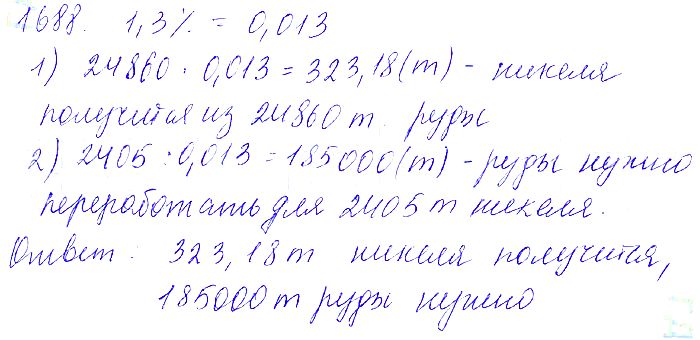 1688. 1,3% = 0,013
1) 24860 · 0,013 = 323,18(т) - никеля
получится из 24860 т. руды
2) 2405 : 0,013 = 185000(т) - руды нужно
переработать для 2405 т никеля.
Ответ: 323,18 т никеля получится,
185000 т руды нужно